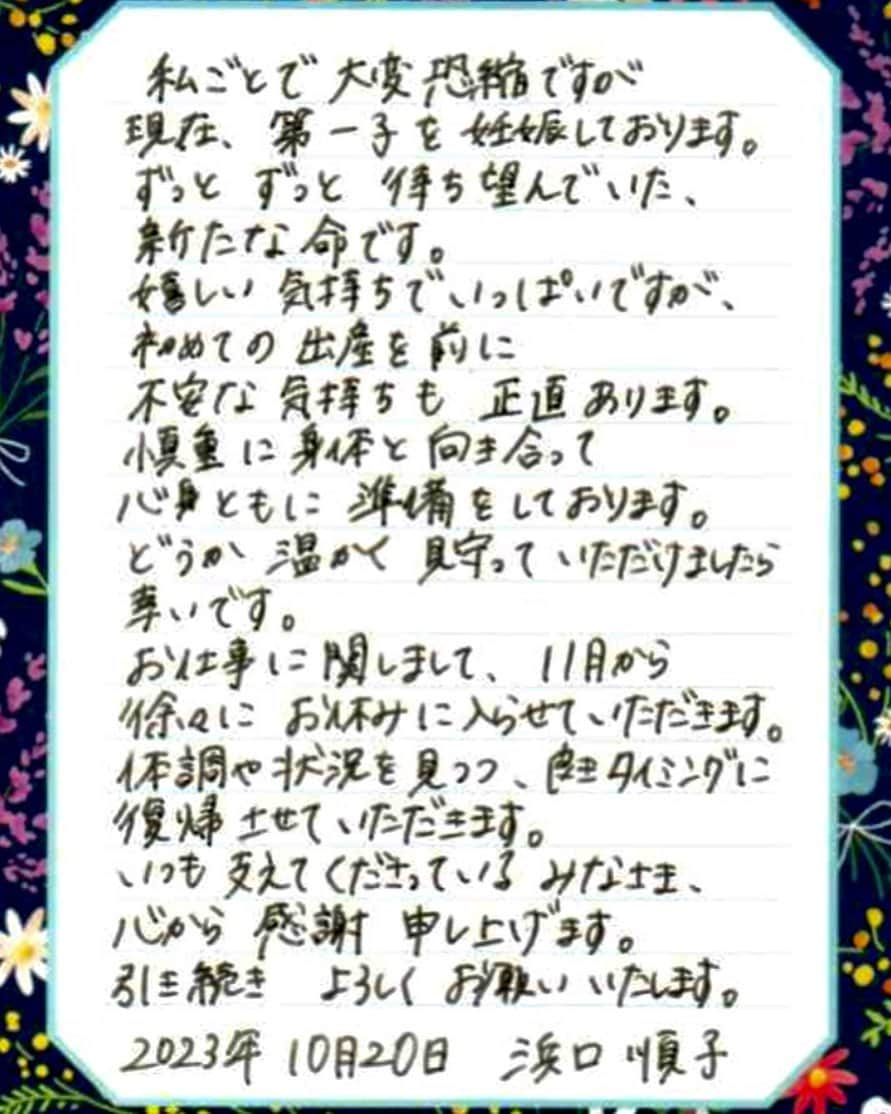 私ごとで 大変恐縮ですが
現在、第一子を妊娠しております。
ずっと ずっと 待ち望んでいた、
新たな命です。
嬉しい 気持ちでいっぱいですが、
初めての 出産を前に
不安な 気持ちも 正直あります。
慎重に身体と向き合って
心身ともに 準備をしております。
どうか 温かく 見守っていただけましたら
幸いです。
お仕事に関しまして、11月から
徐々に お休みに入らせていただきます。
体調や状況を見つつ、良きタイミングに
復帰させていただきます。
いつも 支えてくださっている みなさま、
心から 感謝 申し上げます。
引き続き よろしく お願いいたします。
2023年10月20日 浜口順子